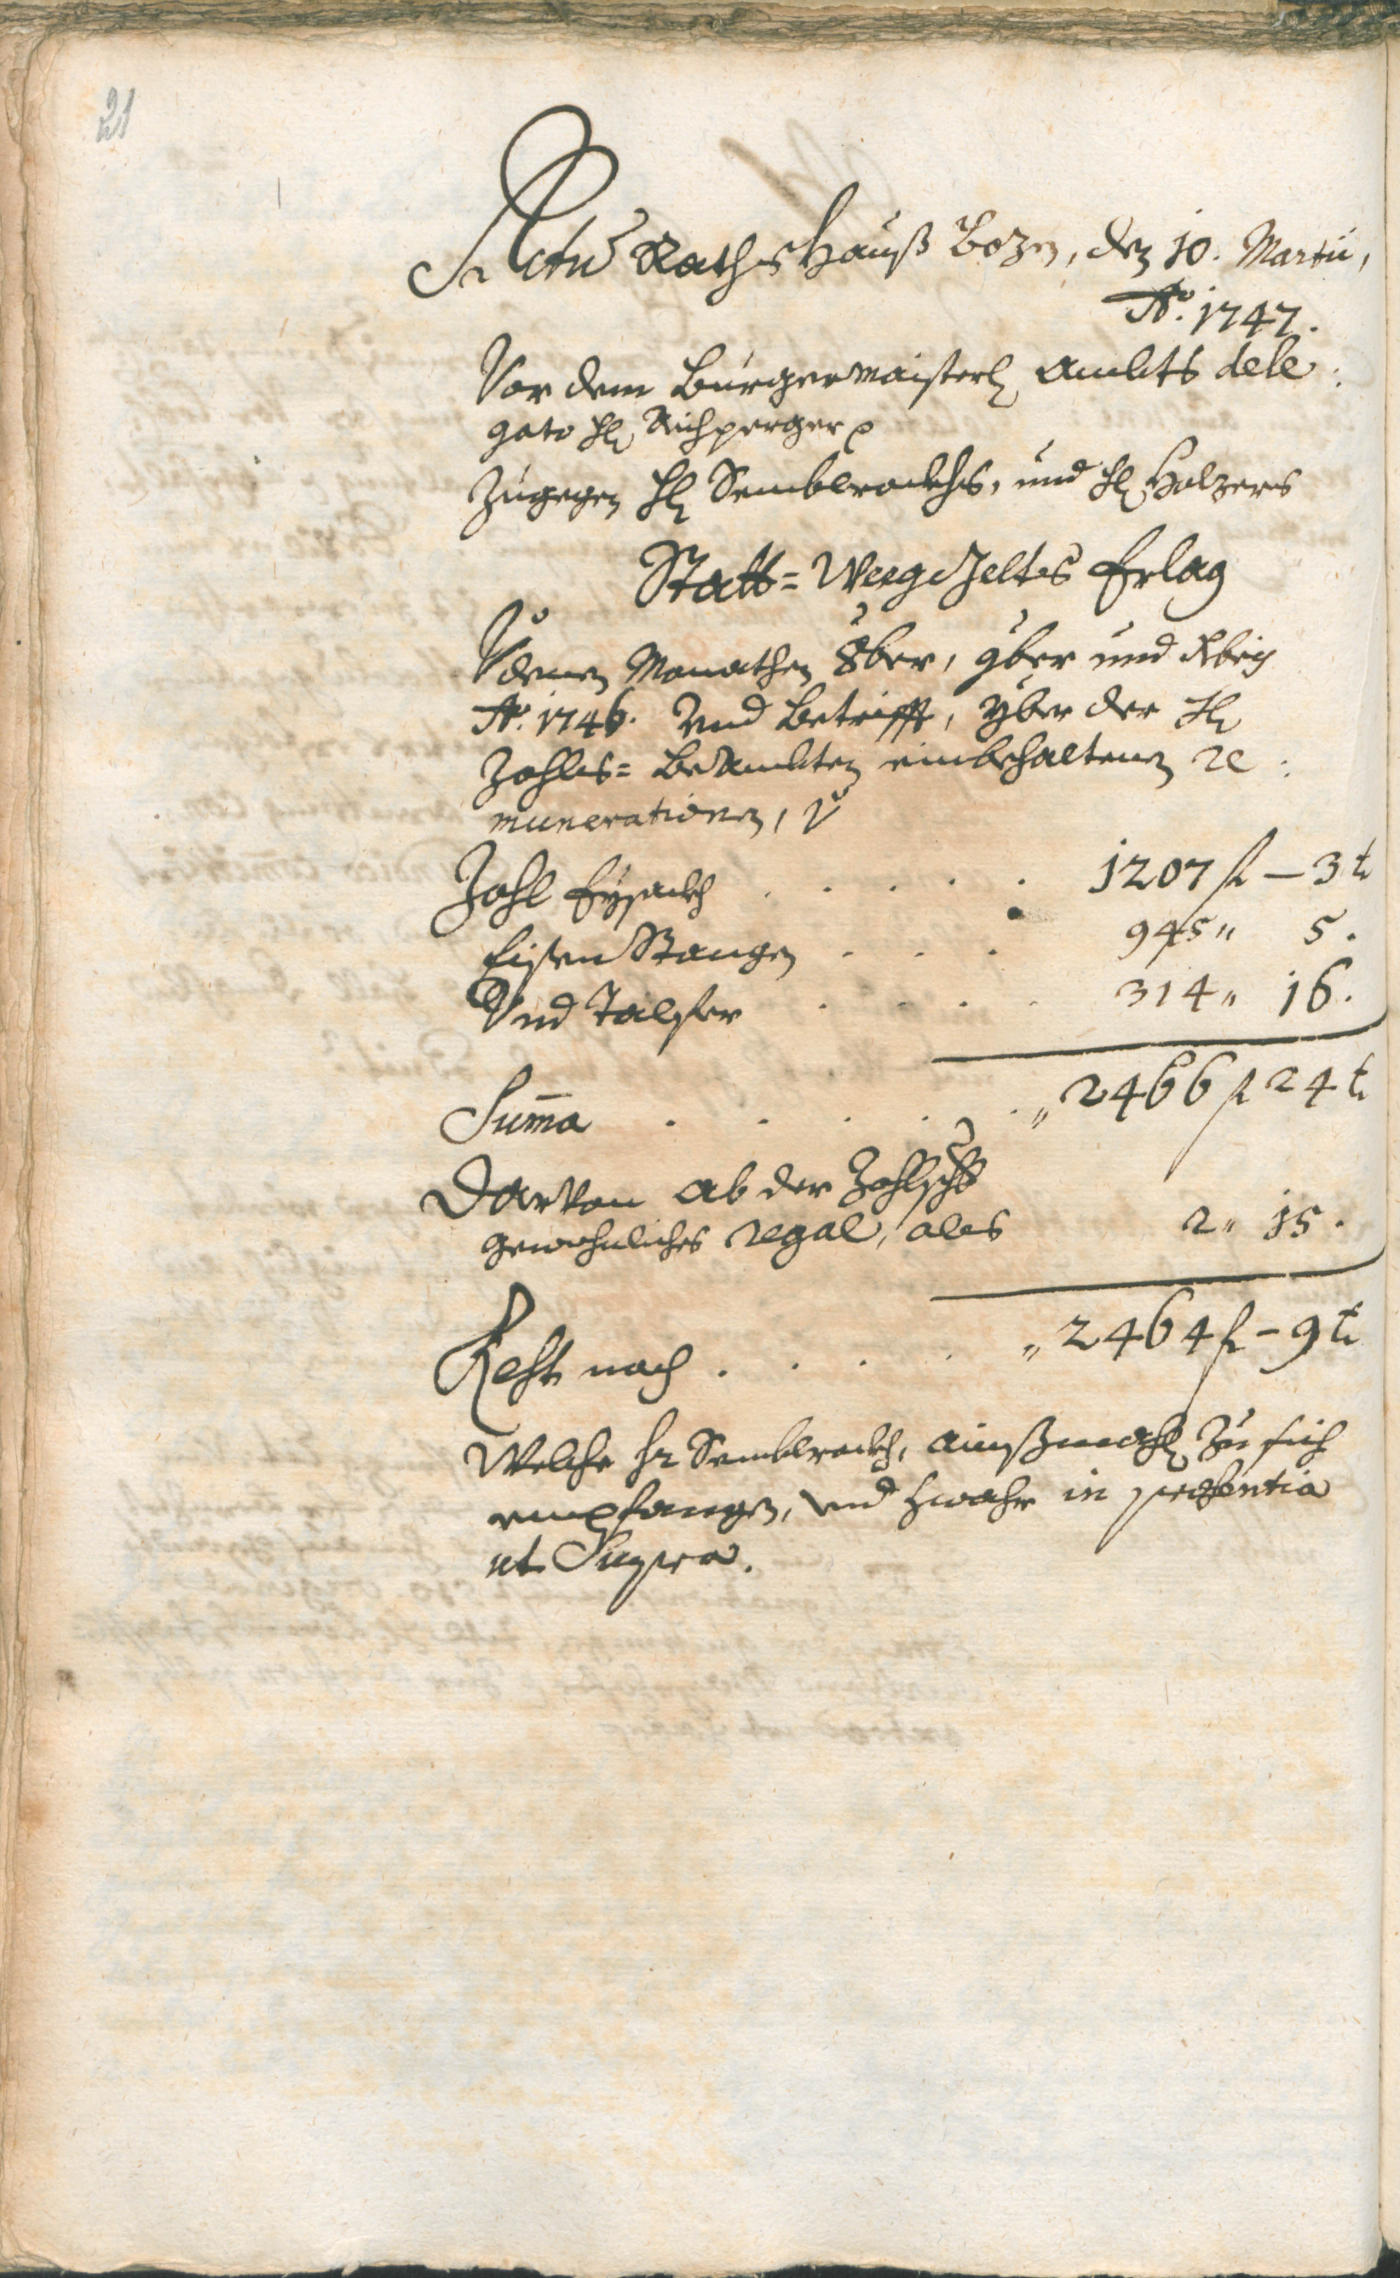 21
Actu Raths Hauß Bozen, den 10. Martii,
Ao. 1747.
Vor dem Burgermaisterl Ambts dele:
gato Hl Aichperger
Zugegen Hl Semblrockhs, und Hl Holzers
Statt= Weeg Geltes Erlag
Vo denen Monathen 8ber, 9ber und Xbris
Ao. 1746. Und betrifft, yber der Hl
Zohls= Beambten einbehaltenen re:
munerationen,
Zohl Eysackh . . . . . 1207 fl – 3 k
Eisen Stangen . . . 945 " 5.
Und Talfer . . . . 314 " 16.
Suma . . . . . " 2466 fl 24 k
Darvon ab der
gewohnliches regal, als 2 " 15.
Rest noch . . . . " 2464 fl – 9 k
Welche Hr Semblrockh, zu sich
empfangen, und zwahr in præsentia
ut Supra.